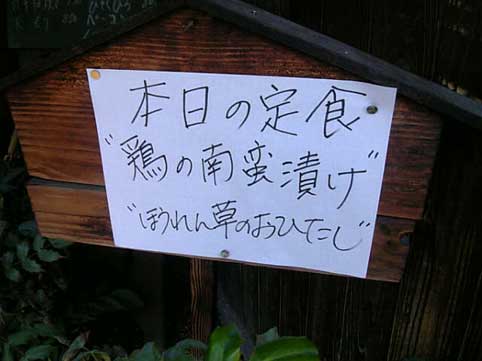 本日の定食
"鶏の南蛮漬け"
"ほうれん草のおひたし"